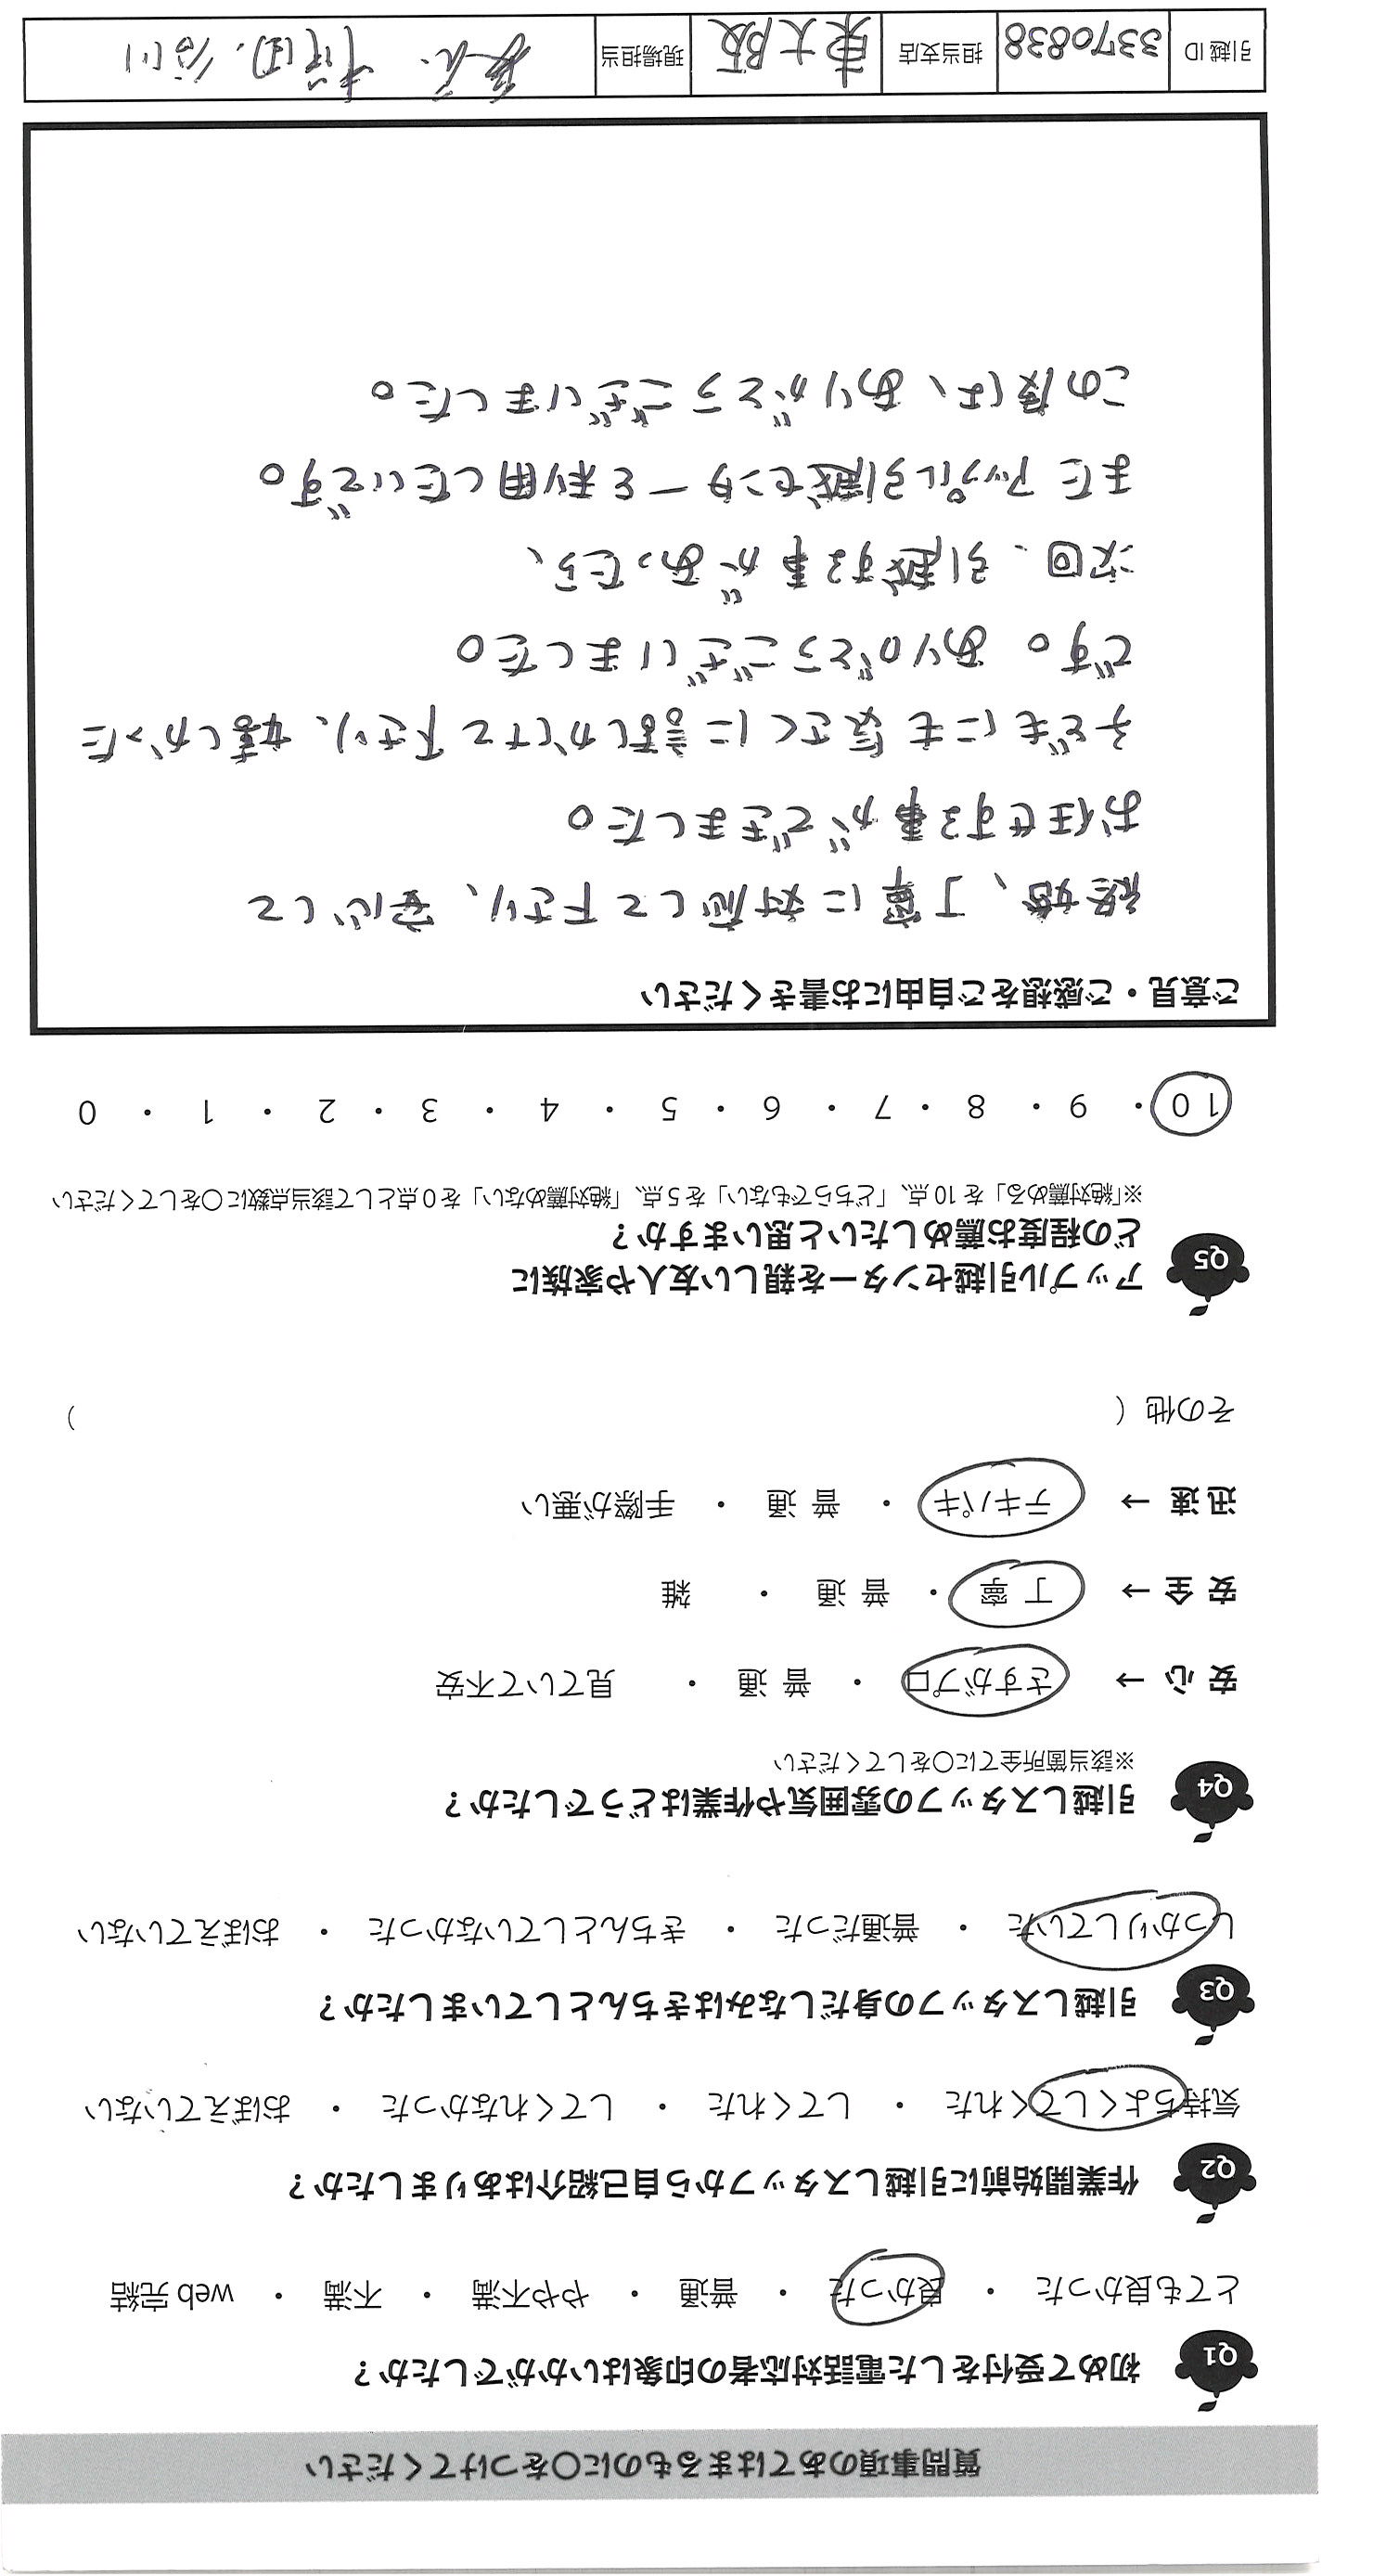 質問事項のあてはまるものに〇をつけてください
Q1 初めて受付をした電話対応者の印象はいかがでしたか？
とても良かった ・ 良かった ・ 普通 ・ やや不満 ・ 不満 ・ web完結
Q2 作業開始前に引越しスタッフから自己紹介はありましたか？
気持ちよくしてくれた ・ してくれた ・ してくれなかった ・ おぼえていない
Q3 引越しスタッフの身だしなみはきちんとしていましたか？
しっかりしていた ・ 普通だった ・ きちんとしていなかった ・ おぼえていない
Q4 引越しスタッフの雰囲気や作業はどうでしたか？
※該当箇所全てに〇をしてください
安心 → さすがプロ ・ 普通 ・ 見ていて不安
安全 → 丁寧 ・ 普通 ・ 雑
迅速 → テキパキ ・ 普通 ・ 手際が悪い
その他（ ）
Q5 アップル引越センターを親しい友人や家族に
どの程度お薦めしたいと思いますか？
※「絶対薦める」を10点、「どちらでもない」を5点、「絶対薦めない」を0点として該当点数に〇をしてください
10 ・ 9 ・ 8 ・ 7 ・ 6 ・ 5 ・ 4 ・ 3 ・ 2 ・ 1 ・ 0
ご意見・ご感想をご自由にお書きください
終始、丁寧に対応して下さり、安心して
お任せする事ができました。
子どもにも気さくに話しかけて下さり、嬉しかった
です。ありがとうございました。
次回、引越する事があったら、
またアップル引越センターを利用したいです。
この度は、ありがとうございました。
引越ID 3370838 担当支店 東大阪 現場担当